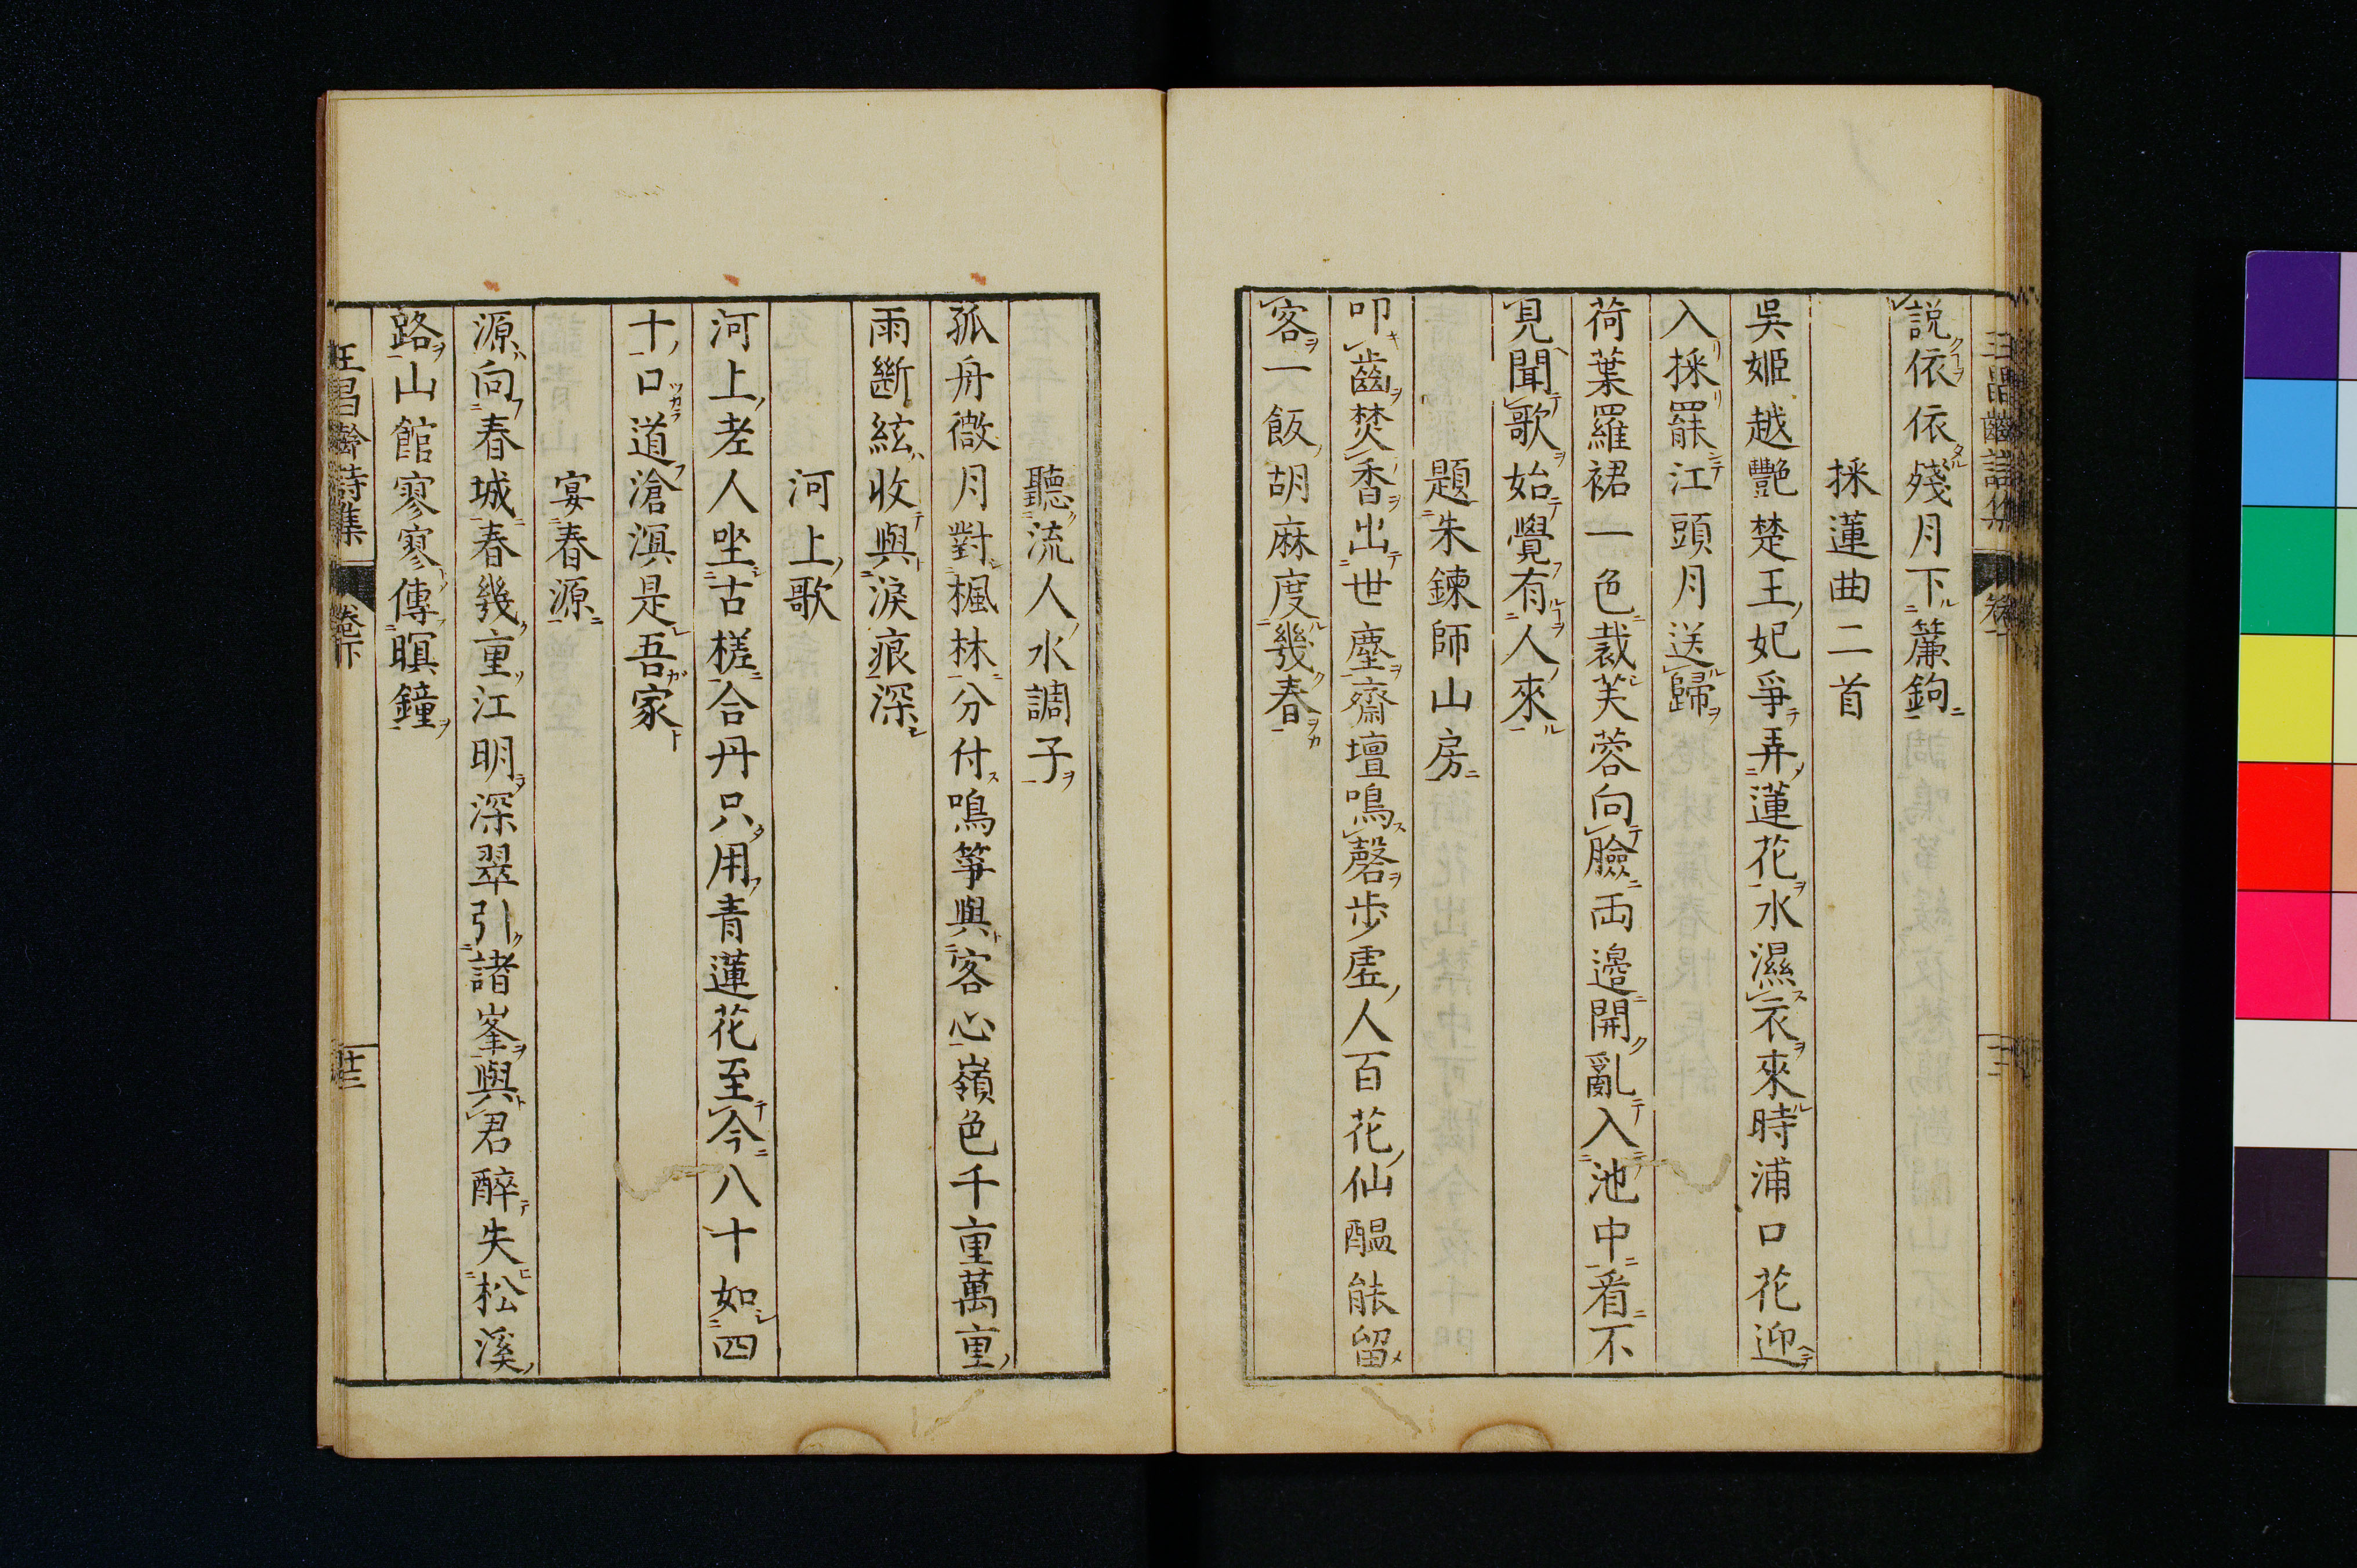 説依依殘月下簾鉤
採蓮曲二首
吳姬越艷楚王妃爭弄蓮花水濕衣來時浦口花迎
入採罷江頭月送歸
荷葉羅裙一色裁芙蓉向臉両邉開亂入池中看不
見聞歌始覺有人來
題朱鍊師山房
叩齒焚香出世塵齋壇鳴磬歩虛人百花仙醞能留
客一飯胡麻度幾春
聽流人水調子
孤舟微月對楓林分付鳴箏與客心嶺色千重萬重
雨斷絃收與淚痕深
河上歌
河上老人坐古槎合丹只用青蓮花至今八十如四
十口道滄溟是吾家
宴春源
源向春城春幾重江明深翠引諸峯與君醉失松溪
路山館寥寥傳暝鐘
王昌齡詩集 卷下 廿三